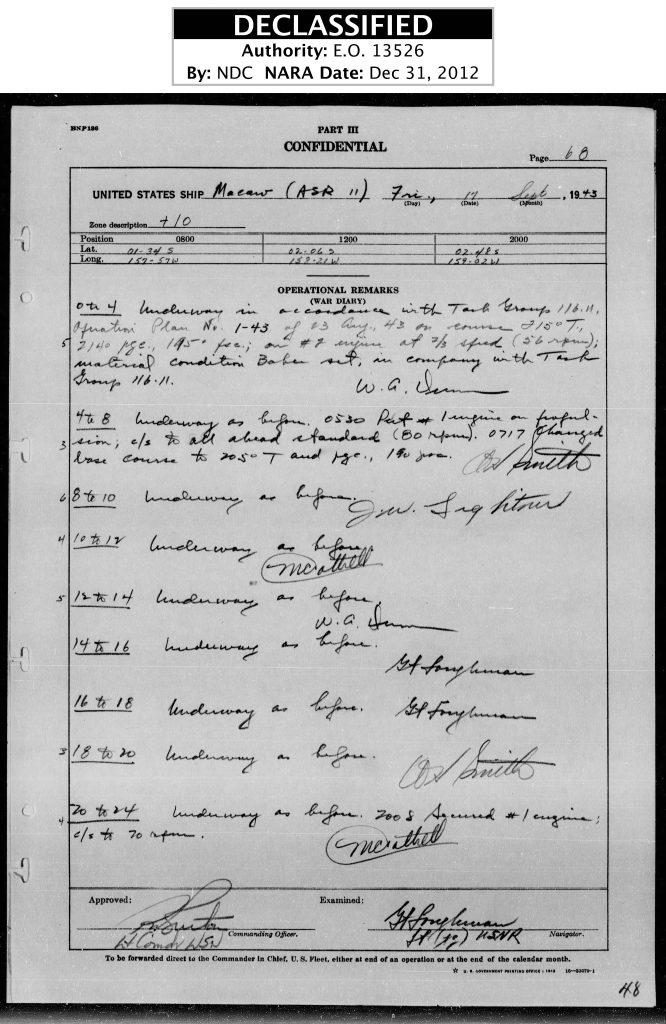 DECLASSIFIED
Authority: E.O. 13526
By: NDC NARA Date: Dec 31, 2012
BNP136
PART III
CONFIDENTIAL
Page 68
UNITED STATES SHIP Macaw (ASR 11) Fri., 17 Sept, 1943
(Day) (Date) (Month)
Zone description +10
Position 0800 1200 2000
Lat. 01-34 S 02-06 S 02-48 S
Long. 157-57W 158-21W 159-02W
OPERATIONAL REMARKS
(WAR DIARY)
0 to 4 Underway in accordance with Task Group 116.11,
Operation Plan No. 1-43 of 23 Aug., 43 on course 215° T,
5 214° pgc., 195° psc.; on #2 engine at 2/3 speed (56 rpm);
material condition Baker set, in company with Task
Group 116.11.
W. A. Dunn
4 to 8 Underway as before. 0530 Put #1 engine on propul-
3 sion; c/s to all ahead standard (80 rpm). 0717 Changed
base course to 205° T and pgc., 190 psc.
Smith
6 8 to 10 Underway as before.
J.W.
4 10 to 12 Underway as before.
5 12 to 14 Underway as before.
W. A. Dunn
14 to 16 Underway as before.
16 to 18 Underway as before.
3 18 to 20 Underway as before.
Smith
4 20 to 24 Underway as before. 2008 Secured #1 engine;
c/s to 70 rpm.
Approved: Examined:
Lt Comdr USN Commanding Officer.
Lt (jg) USNR Navigator.
To be forwarded direct to the Commander in Chief, U. S. Fleet, either at end of an operation or at the end of the calendar month.
☆ U. S. GOVERNMENT PRINTING OFFICE : 1943 16-33079-1
48